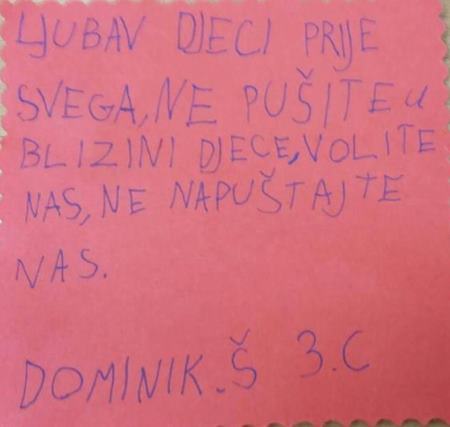 LJUBAV DJECI PRIJE
SVEGA, NE PUŠITE u
BLIZINI DJECE, VOLITE
NAS, NE NAPUŠTAJTE
NAS.
DOMINIK. Š 3.C